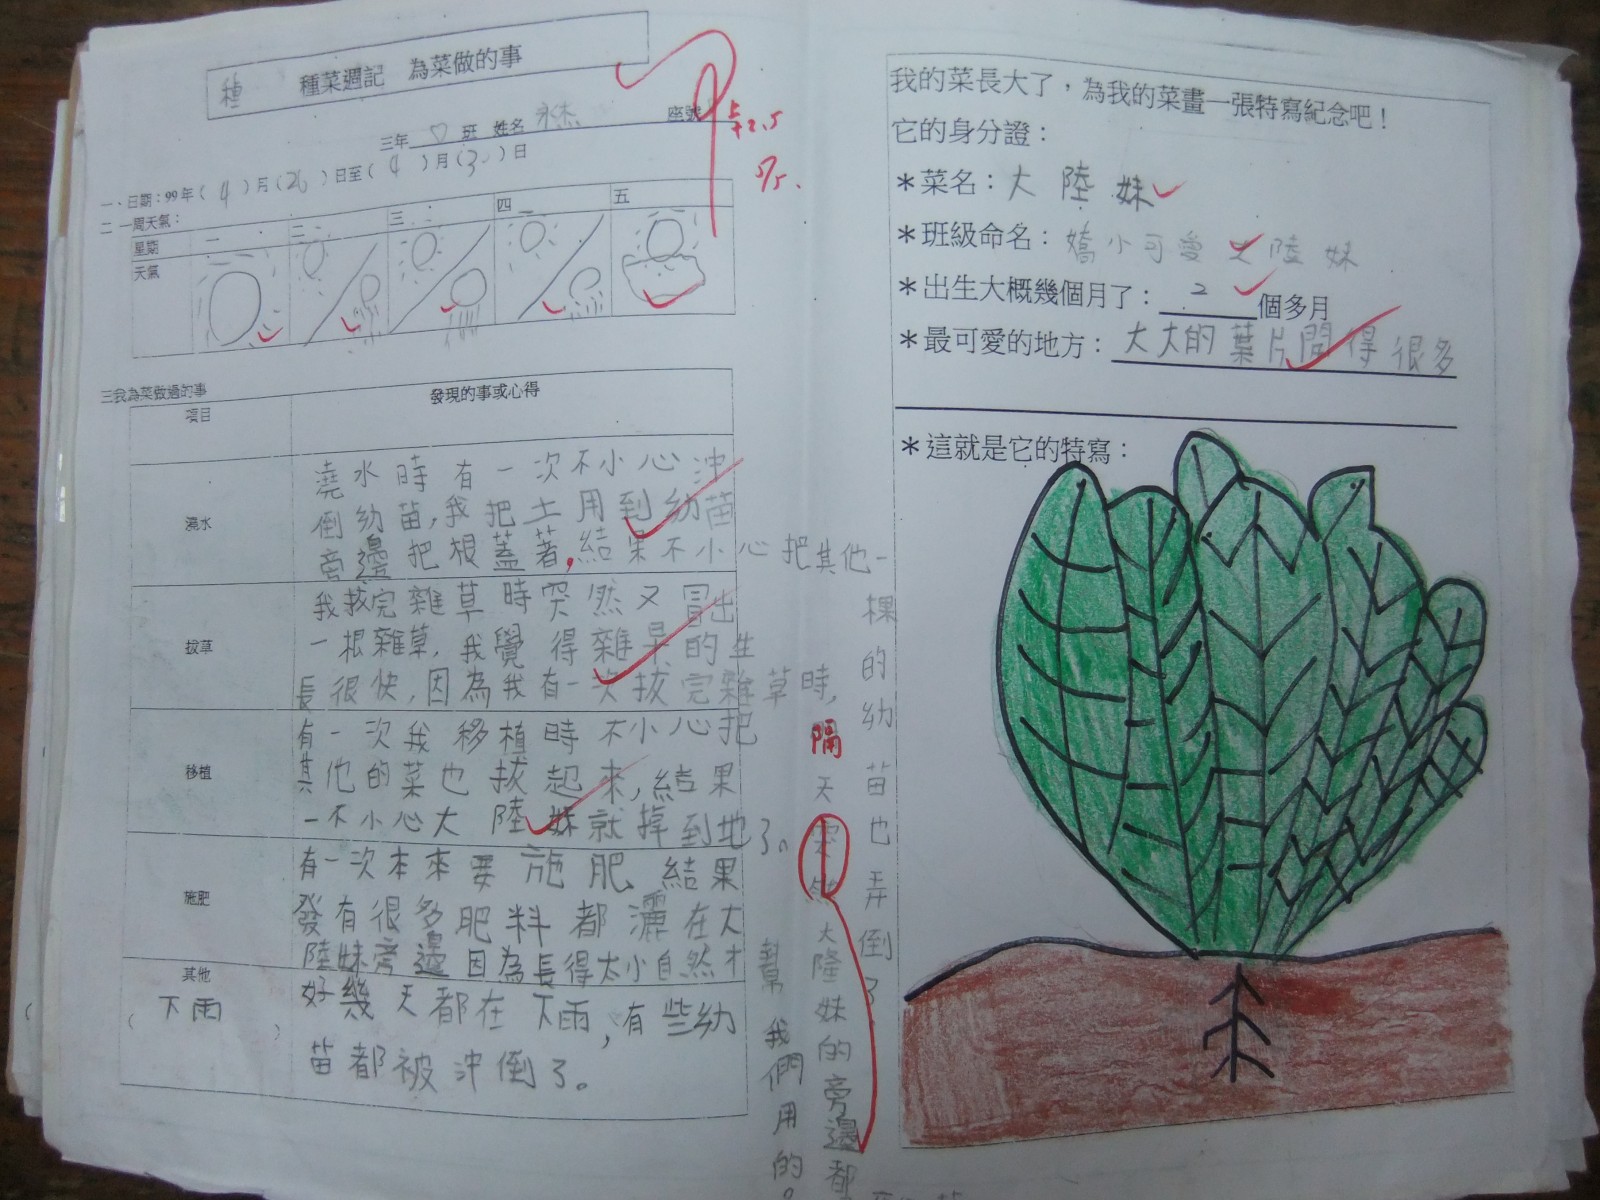 種
種菜週記 為菜做的事
三年 ♡ 班 姓名 永杰 座號
+2.5
5/5.
一、日期:99年(4)月(26)日至(4)月(30)日
二 一周天氣:
星期 一 二 三 四 五
天氣
三我為菜做過的事
項目 發現的事或心得
澆水
澆水時有一次不小心沖
倒幼苗,我把土用到幼苗
旁邊把根蓋著,結果不小心把其他一
棵的幼苗也弄倒了
拔草
我拔完雜草時突然又冒出
一根雜草,我覺得雜草的生
長很快,因為我有一次拔完雜草時,
隔天突然大隆妹的旁邊都
移植
有一次我移植時不小心把
其他的菜也拔起來,結果
一不小心大陸妹就掉到地了。
施肥
有一次本來要施肥、結果
發有很多肥料都灑在大
陸妹旁邊因為長得太小自然才
幫我們用的。
其他
(下雨)
好幾天都在下雨,有些幼
苗都被沖倒了。
我的菜長大了,為我的菜畫一張特寫紀念吧!
它的身分證:
*菜名:大陸妹
*班級命名:嬌小可愛大陸妹
*出生大概幾個月了:2個多月
*最可愛的地方:大大的葉片開得很多
*這就是它的特寫: